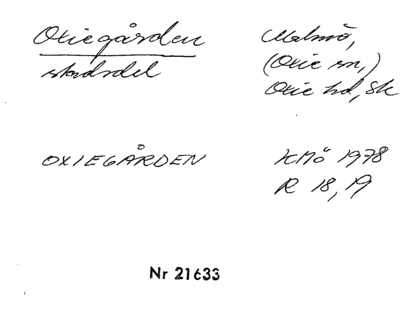 Oxiegården
stadsdel
Malmö,
(Oxie sn,)
Oxie hd, Sk
OXIEGÅRDEN
KMÖ 1978
R 18, 19
Nr 21633